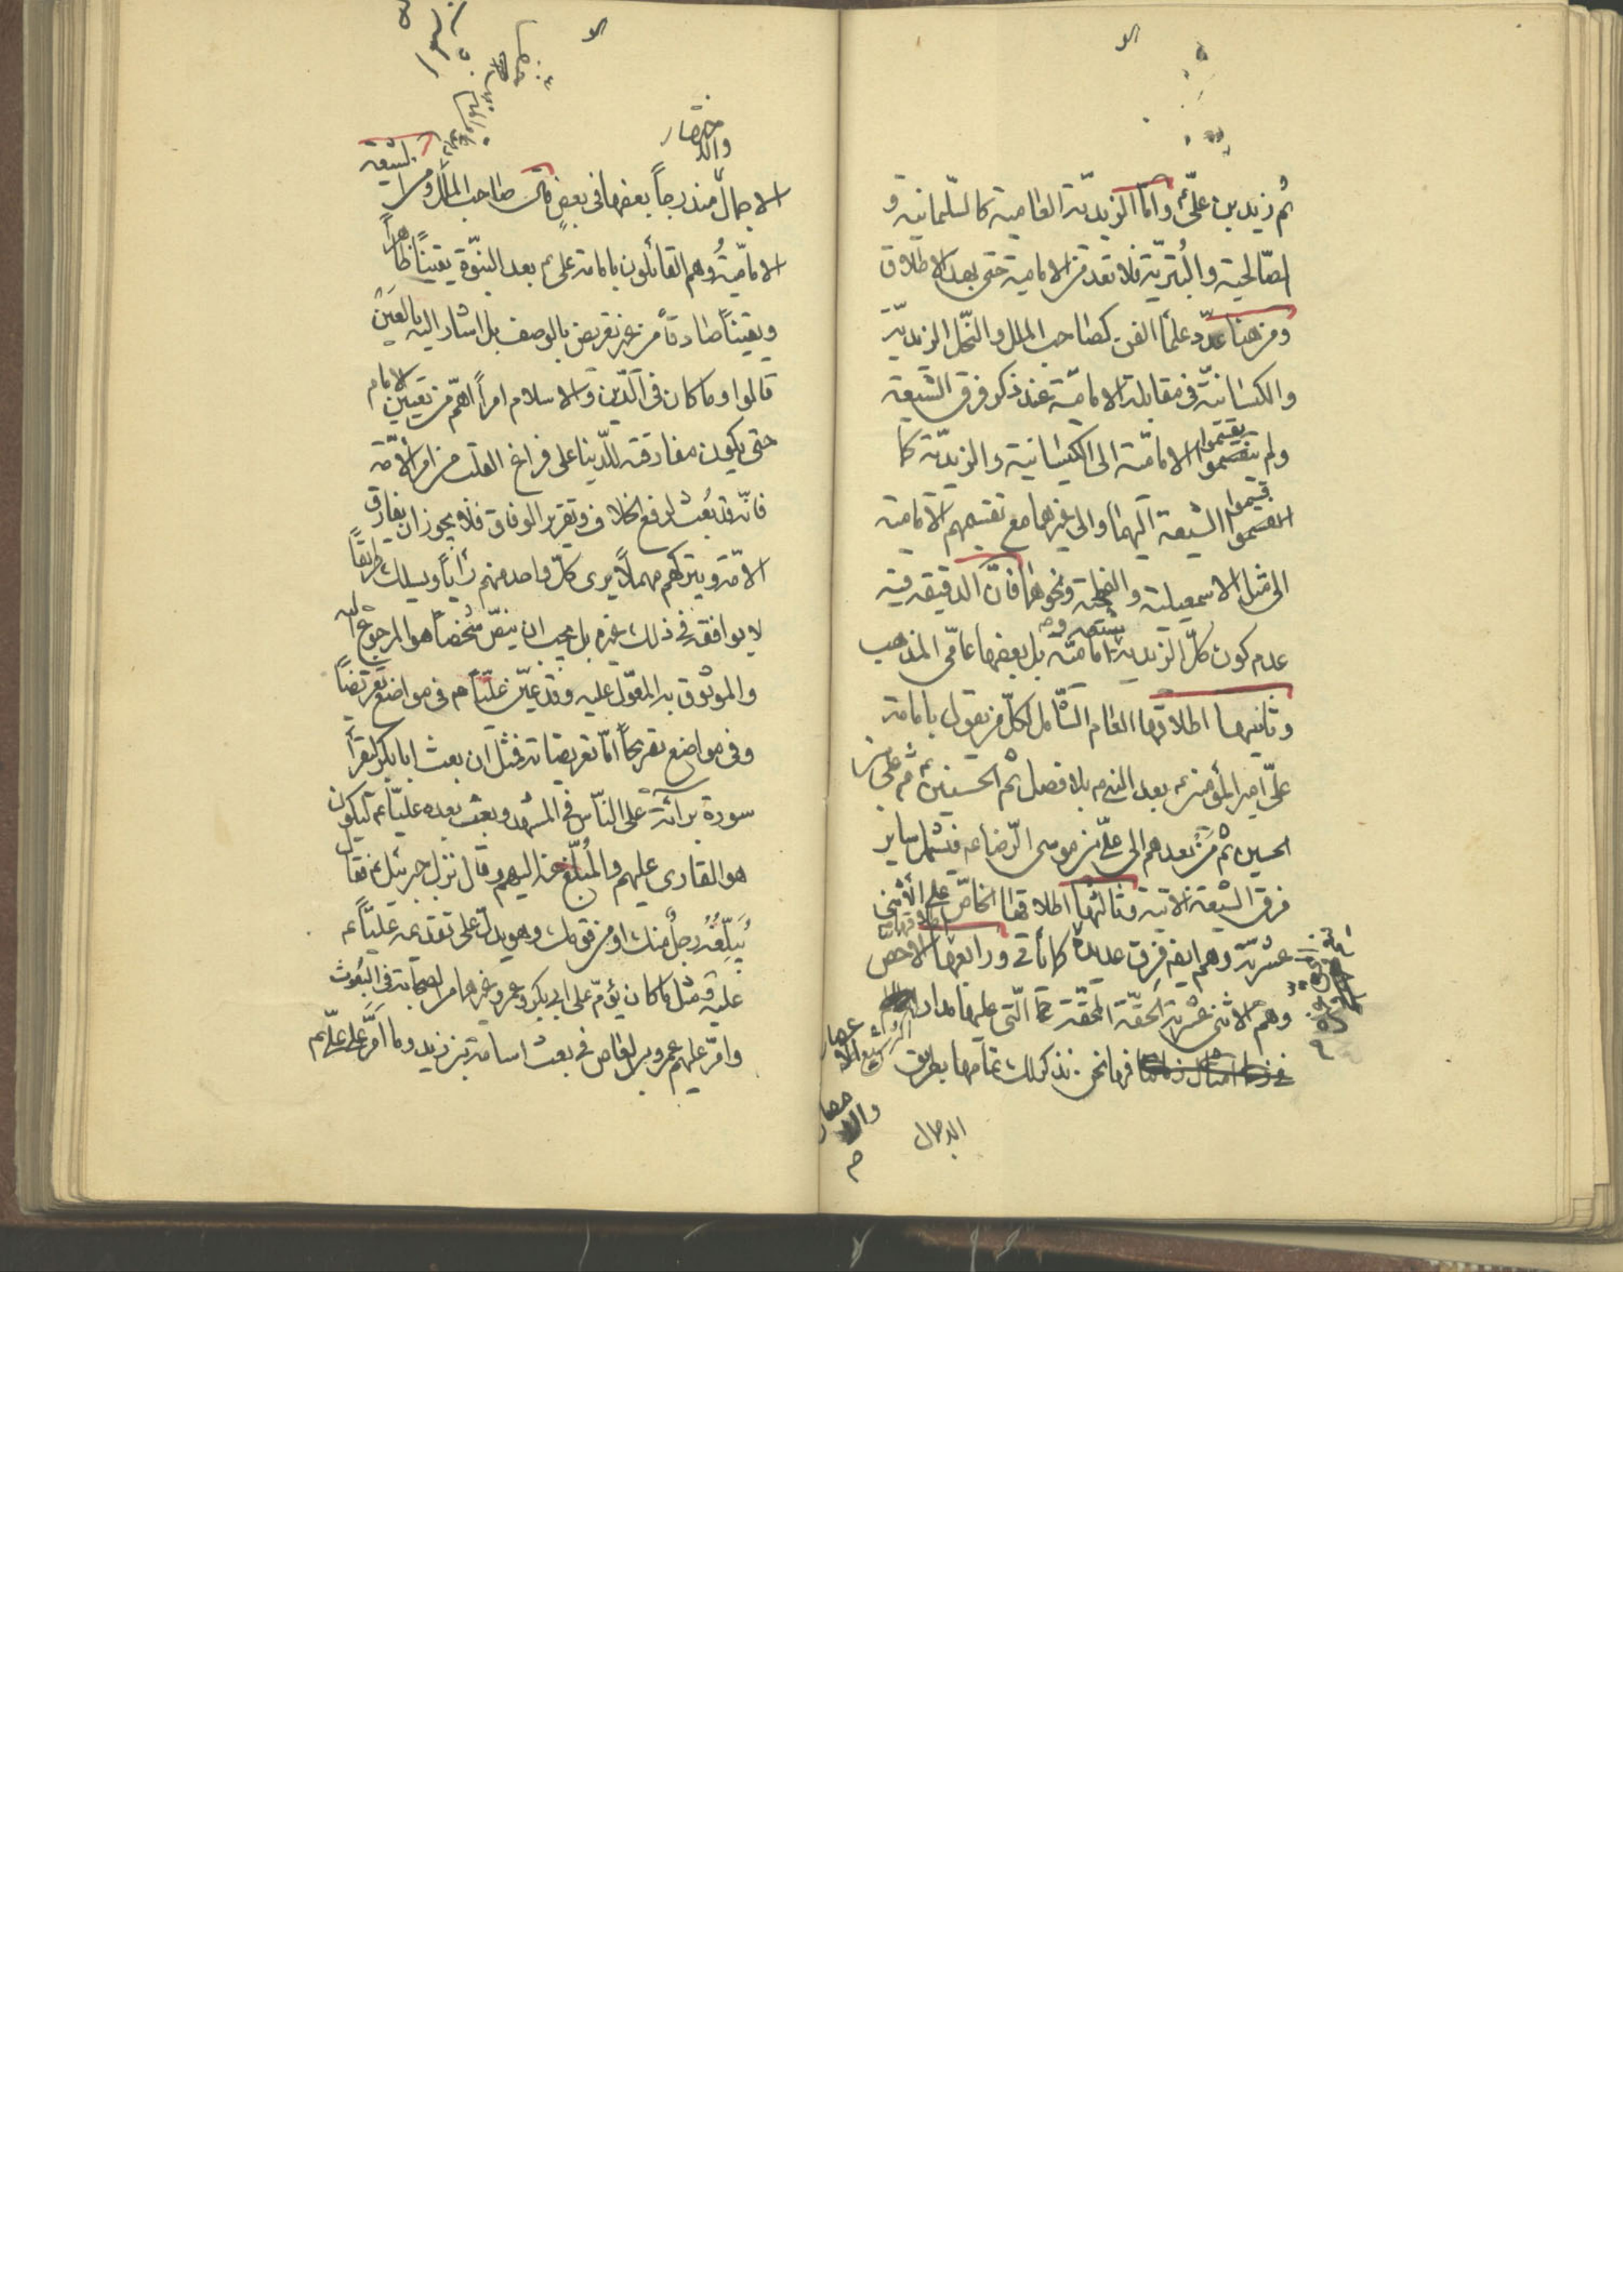 ثم زيد بن علىّ وامّا الزيديّة العامية كالسّليمانية و
الصّالحية والبُتريّة فلا تعد من الامامية حتى بهذا الاطلاق
ومن هنا عدّد علمآ الفن كصاحب الملل والنّحل الزيديّة
والكيسانيّة فى مقابلة الاماميّة عند ذكر فرق الشيعة
ولم يقسموا الاماميّة الى الكيسانية والزيديّة كما
قسّموا الشيعة اليهما والى غيرهما مع تقسيمهم الامامية
الى مثل الاسمعيلية والفطحيّة ونحوهما فانّ الدقيقة فيه
عدم كون كلّ الزيدية اماميّة بل بعضها عامّى المذهب
وثانيها اطلاقها العام الشّامل لكلّ من يقول بامامة
علىّ امير المؤمنين بعد النبى بلا فصل ثم الحسنين ثم على بن
الحسين ثم مَنْ بعدهم الى علىّ بن موسى الرّضا فيشمل ساير
فرق الشيعة الاتية وثالثها اطلاقها الخاصّ على الاثنى
عشريّة وهم ايضا فِرق عديدة كما يأتى ورابعها الاخص
وهم الاثنى عشرية الحقّة المحقّة التّى عليها مدار
فها نحن نذكر لك تمامها بطريق
الاجمال
والاختصار
الاجمال مندرجاً بعضها فى بعضٍ قال صاحب الملل ومن الشيعة
الاماميّةُ وهم القائلون بامامة على بعد النبّوة يقينًا ظاهراً
ويقيناً صادقاً من غير تعريض بالوصف بل اشار اليه بالعَيْن
قالوا وما كان فى الدّين والاسلام امراً اهمّ من تعيين الامام
حتى يكون مفارقته للدّنيا على فراغ القلب من امر الامّة
فانّه قد بُعث لرفع الخلاف وتقرير الوفاق فلا يجوز ان يفارق
الامّة ويتركهم مهملاً يرى كلّ واحد منهم رأياً ويسلك طريقاً
لا يوافقه فى ذلك غيره بل يجب ان ينصّ شخصاً هو المرجوع اليه
والموثوق به المعوّل عليه وقد عيّن عليّاً فى مواضع تعريضاً
وفى مواضع تصريحاً امّا تعريضاته فمثل ان بعث ابابكر ليقرأ
سورة برائة على النّاس فى المشهد وبعث بعده عليّاً ليكون
هو القارى عليهم والمُبلّغ عنه اليهم وقال نزل جبرئيل فقال
يُبَلّغُهُ رجلٌ منك او من قومك وهو يدلّ على تقديمه عليّاً
عليه ومثل ما كان يؤمّر على ابى بكر وعمر وغيرهما من الصّحابة فى البُعُوث
وامّر عليهم عمرو بن العاص فى بعث اسامة بن زيد وما اَمّرَ على علىّ